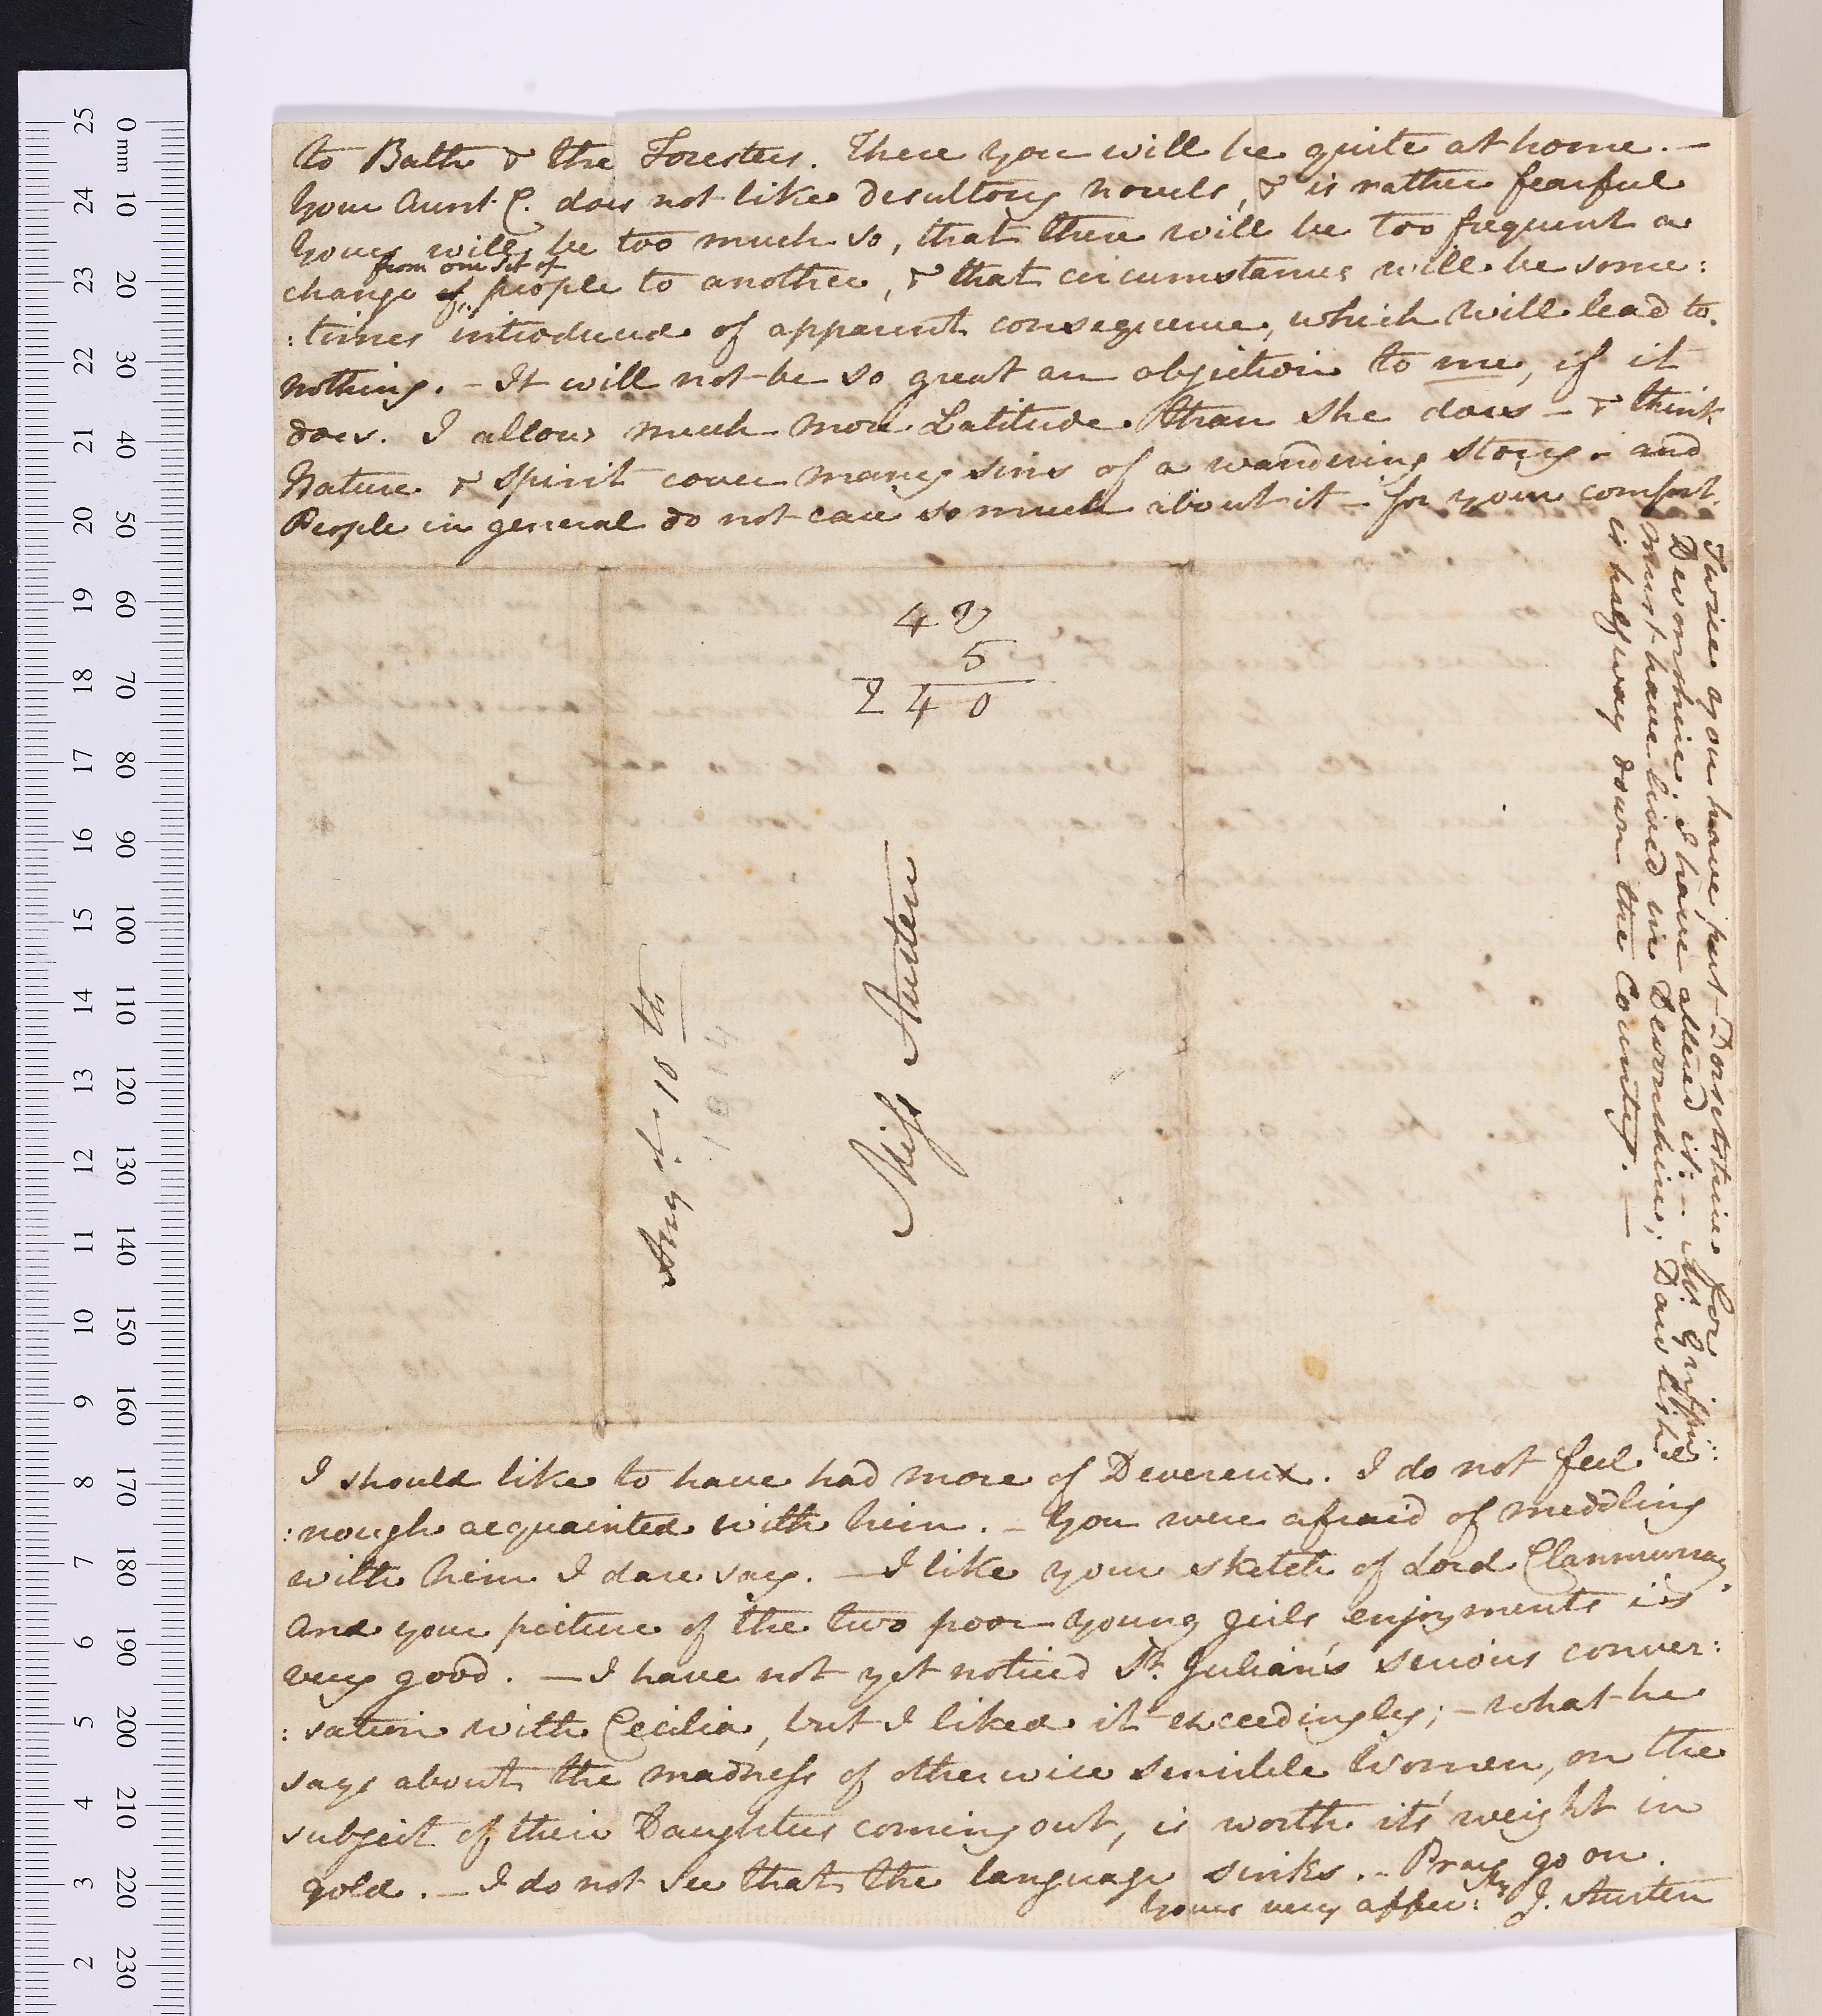 to Bath & the Foresters. There you will be quite at home. –
Your Aunt C. does not like desultory novels, & is rather fearful
yours will be too much so, that there will be too frequent a
change from one set of people to another, & that circumstances will be some:
:times introduced of apparent consequence, which will lead to
nothing. – It will not be so great an objection to me, if it
does. I allow much more Latitude than She does – & think
Nature & spirit cover many sins of a wandering story – and
People in general do not care so much about it – for your comfort.
48
5
240
Miss Austen
Augt. 10th
1814
Twice you have put Dorsetshire for
Devonshire. I have altered it. – Mr. Griffin
must have lived in Devonshire; Dawlish
is half way down the County. –
I should like to have had more of Devereux. I do not feel e:
:nough acquainted with him. – You were afraid of meddling
with him I dare say. – I like your sketch of Lord Clanmurray,
and your picture of the two poor young girls enjoyments is
very good. – I have not yet noticed St. Julian's serious conver:
:sation with Cecilia, but I liked it exceedingly; – what he
says about the madness of otherwise sensible Women, on the
subject of their Daughters coming out, is worth it's weight in
gold. – I do not see that the language sinks. – Pray go on.
Yours very affec:ly J. Austen